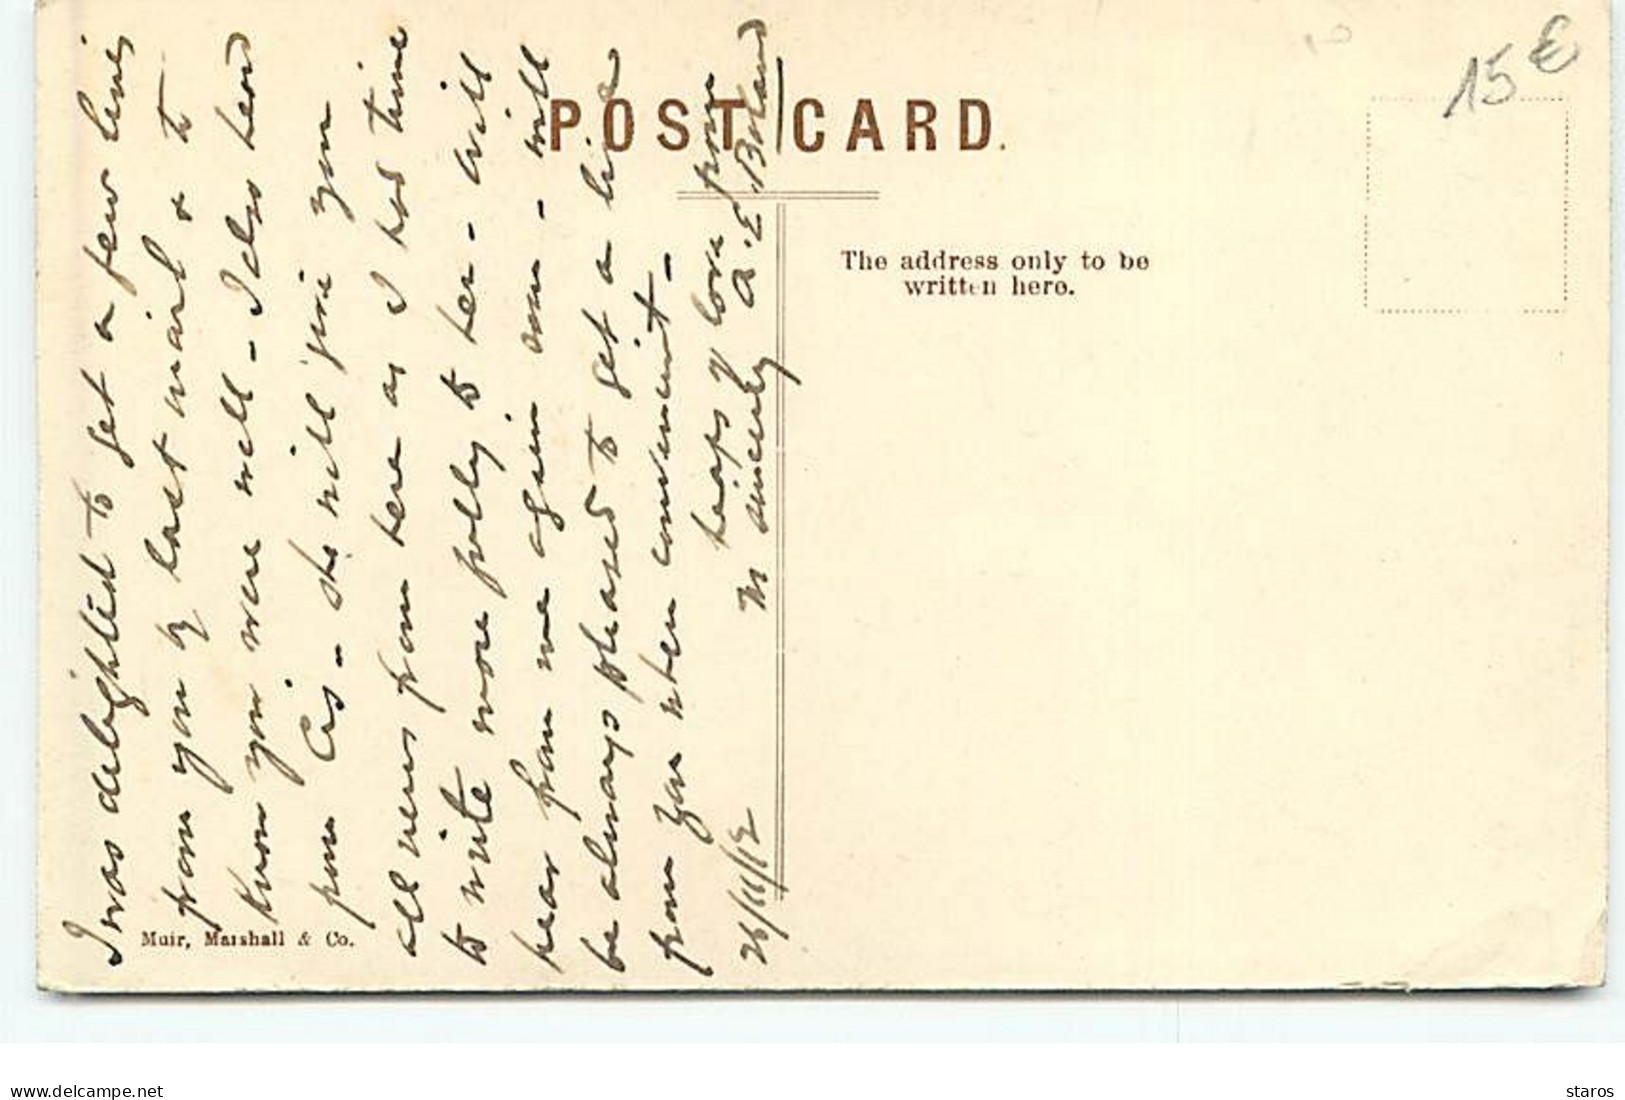 POST CARD.
The address only to be
written here.
15 €
I was delighted to get a few lines
from you by last mail & to
know you were well - I also heard
from Cis - she will give you
all news from here as I had time
to write more fully to her - will
hear from me again soon - will
be always pleased to get a line
from you when convenient -
heaps of love from
26/11/12 Yr sincerely A. E. Boland
Muir, Marshall & Co.
www.delcampe.net
staros